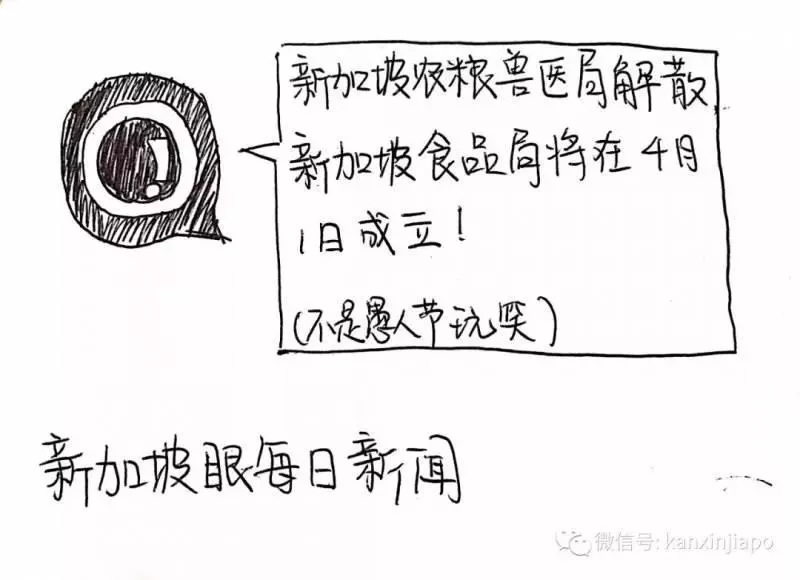 新加坡农粮兽医局解散
新加坡食品局将在4月
1日成立!
(不是愚人节玩笑)
新加坡眼每日新闻
微信号: kanxinjiapo